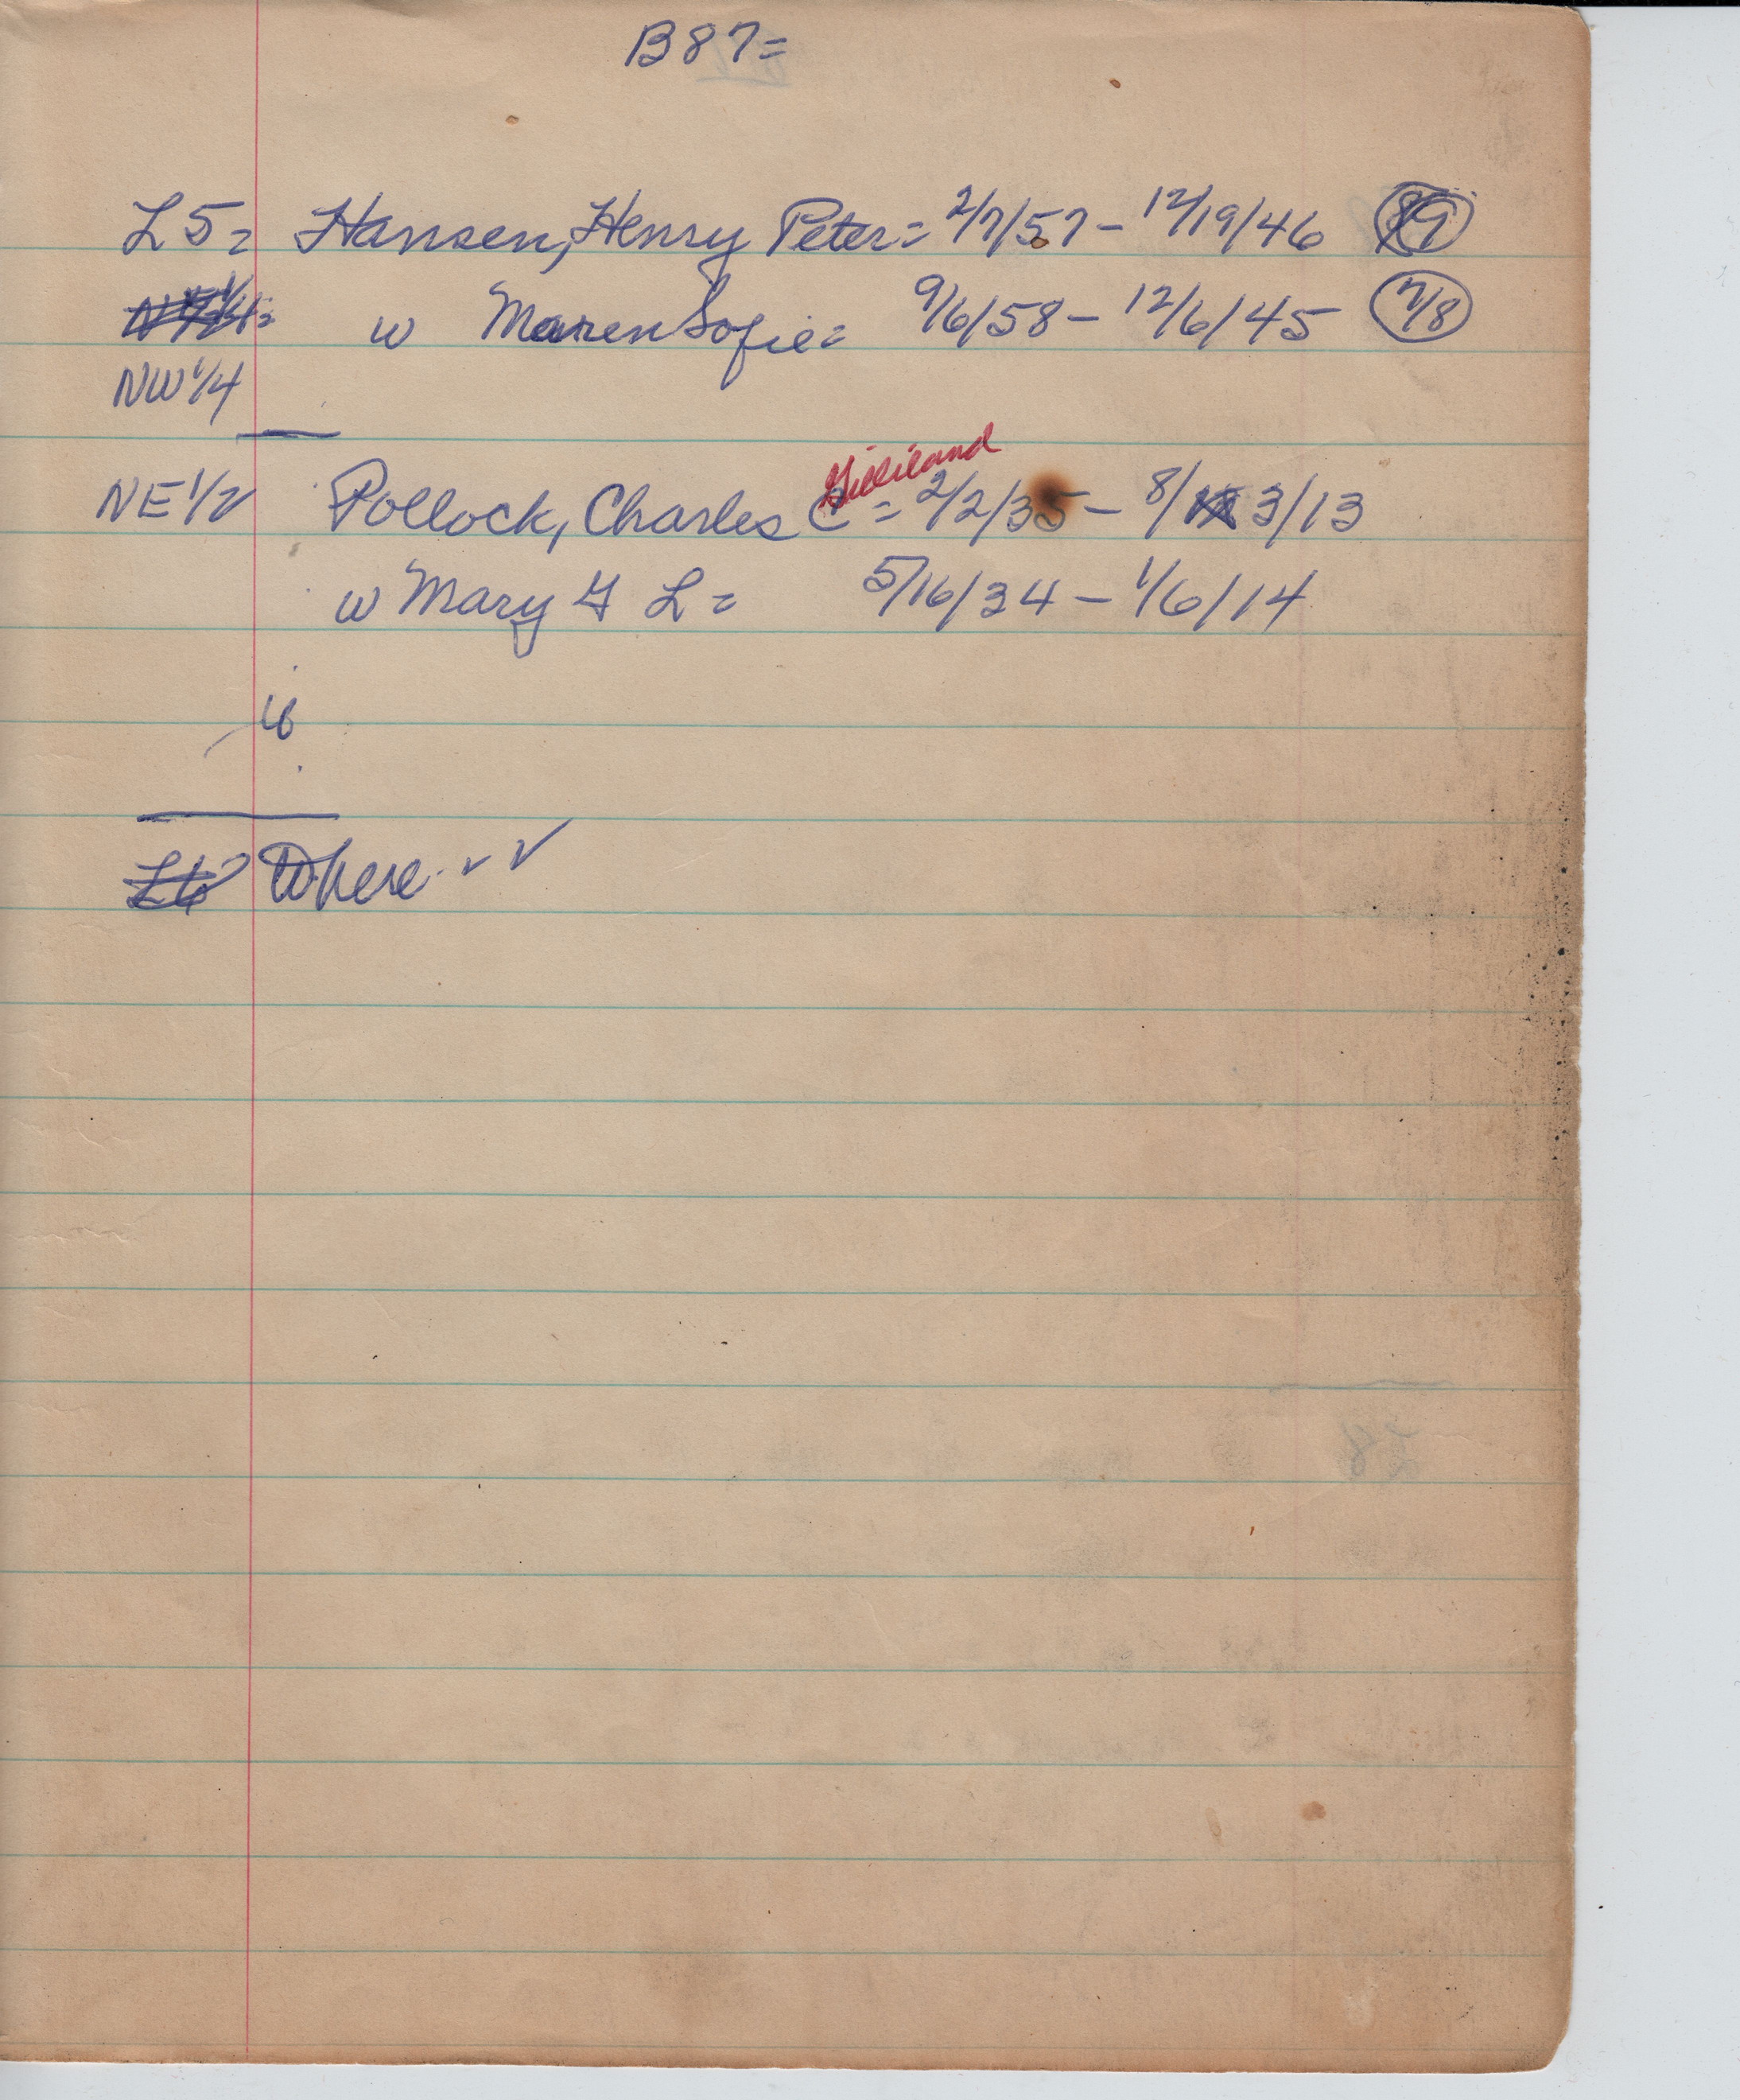 B87=
L5= Hansen, Henry Peter= 2/7/57 - 12/19/46
w Maren Sofie= 9/6/58 - 12/6/45 7/8
NW 1/4
Gilliland
NE 1/2 Pollock, Charles C = 2/2/35 - 8/3/13
w Mary G L= 5/16/34 - 1/6/14
L6 Where